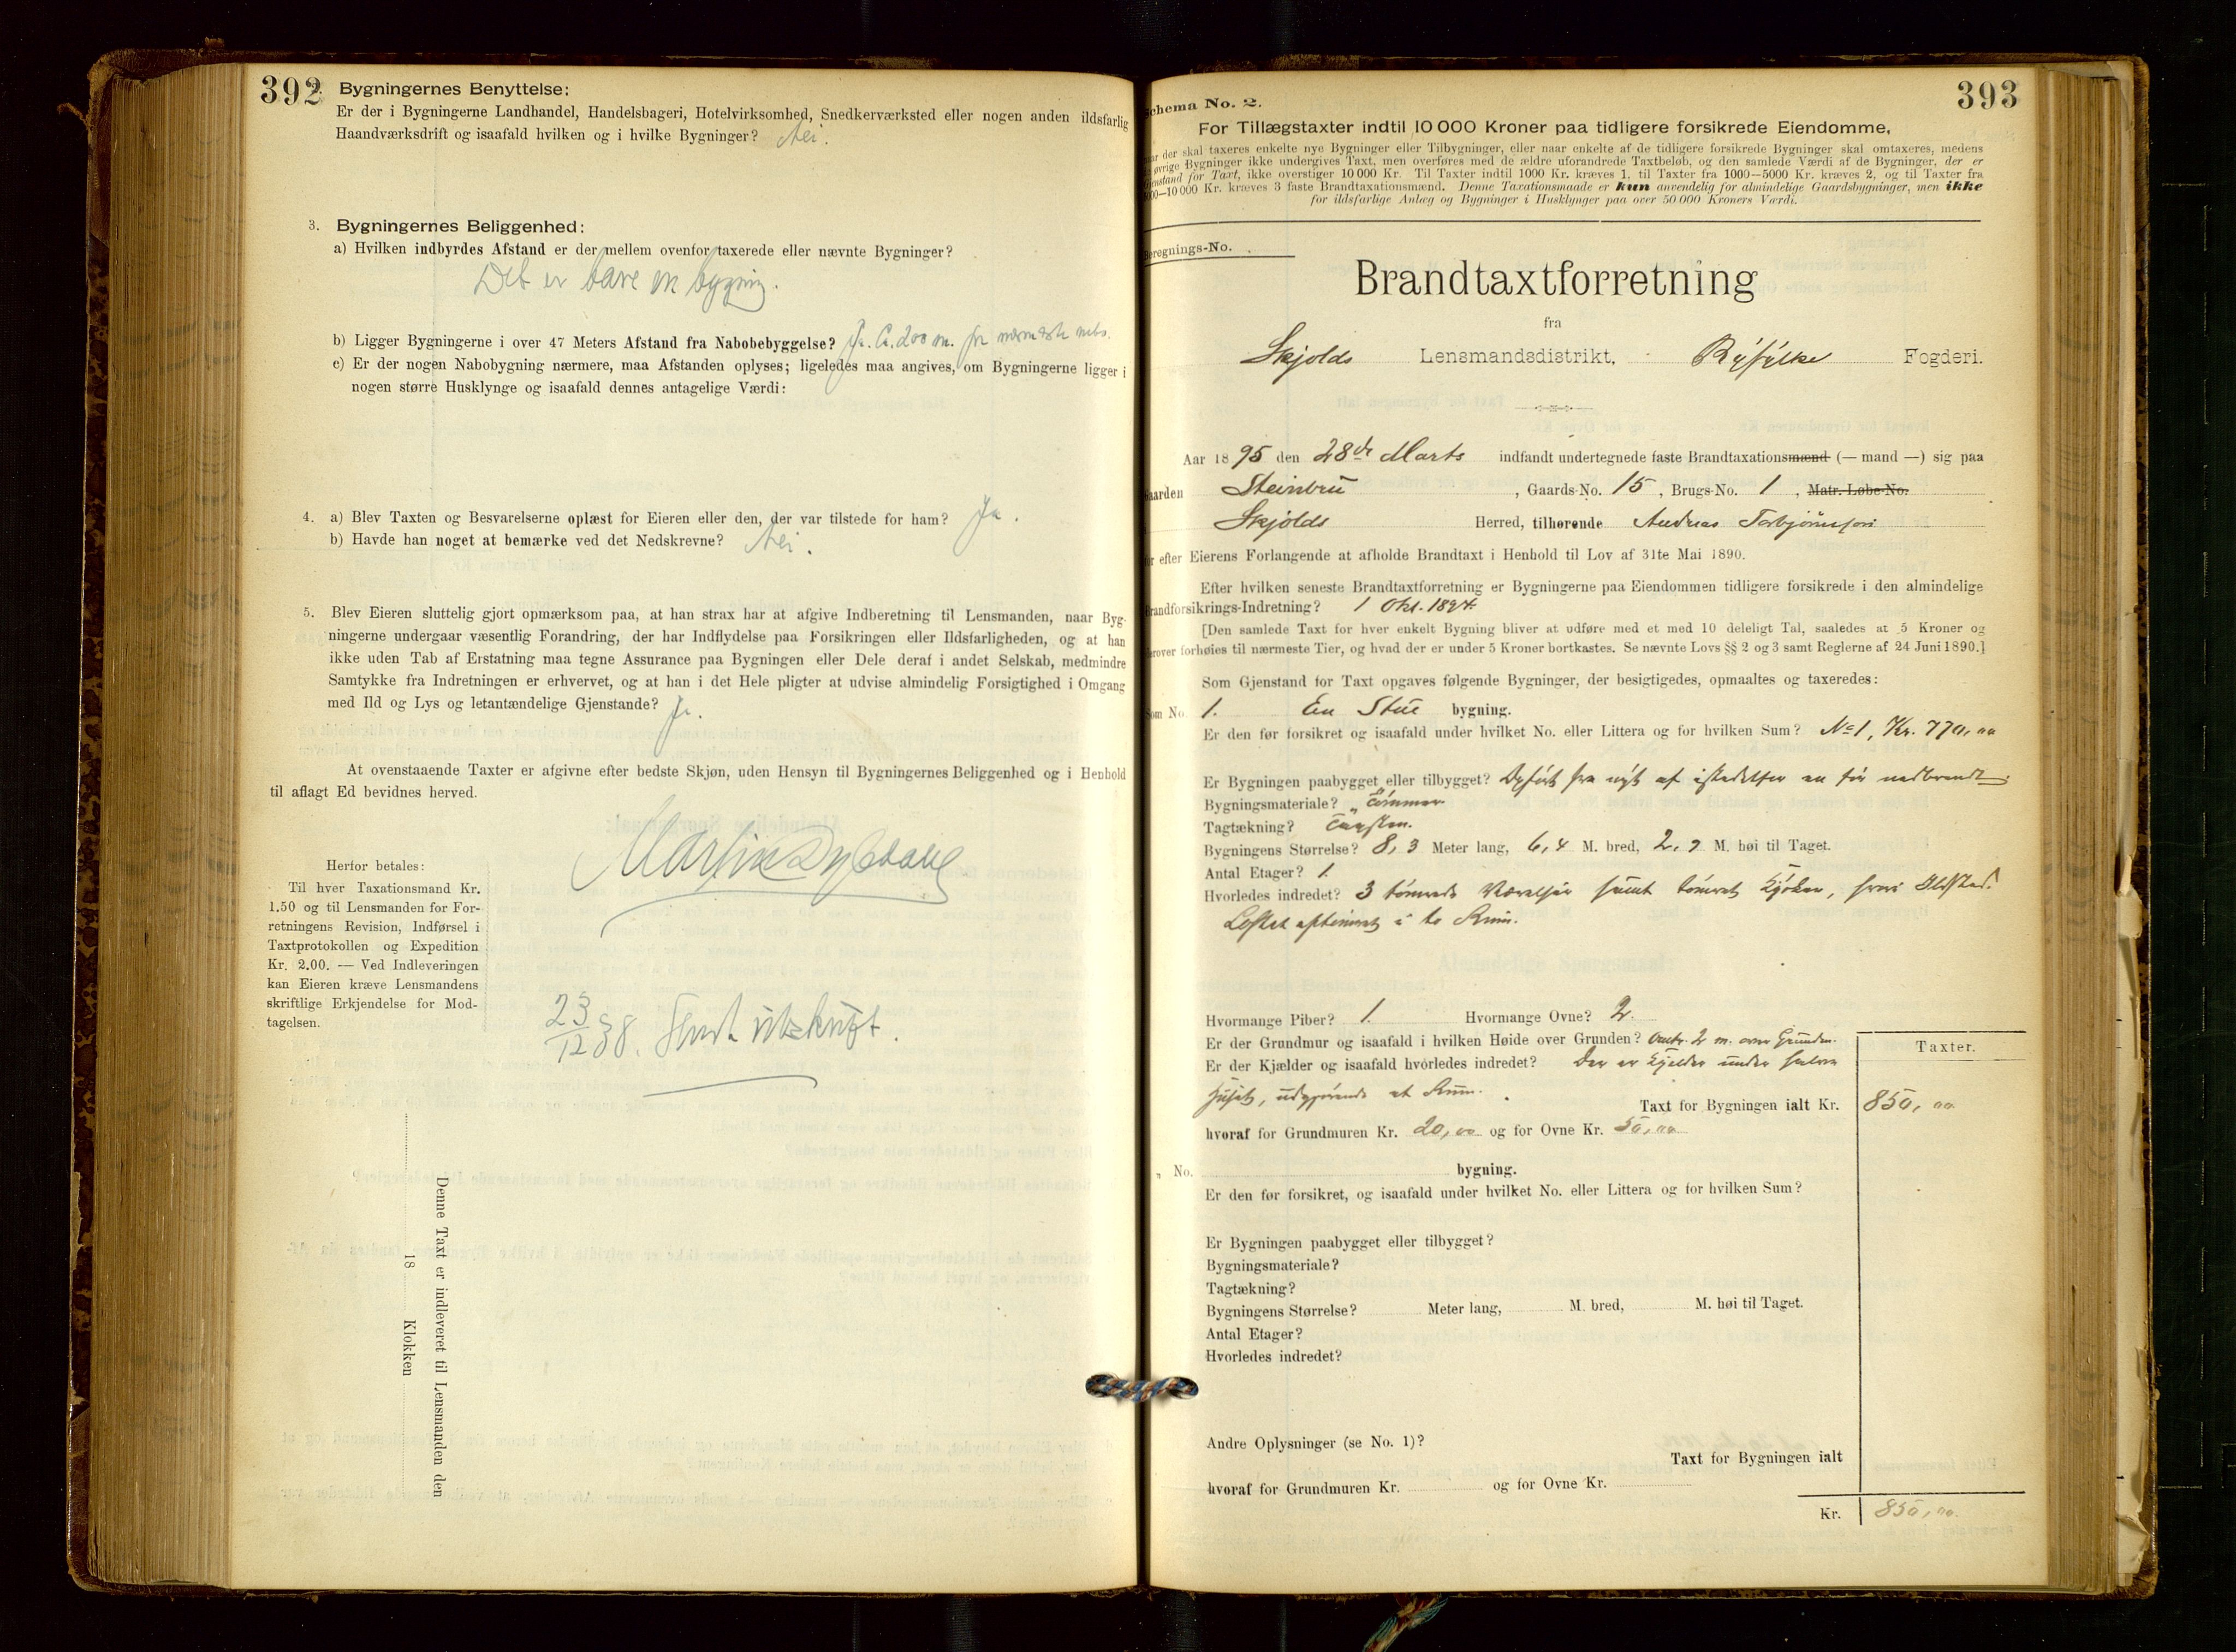 392
Bygningernes Benyttelse:
Er der i Bygningerne Landhandel, Handelsbageri, Hotelvirksomhed, Snedkerværksted eller nogen anden ildsfarlig
Haandværksdrift og isaafald hvilken og i hvilke Bygninger? Nei.
3. Bygningernes Beliggenhed:
a) Hvilken indbyrdes Afstand er der mellem ovenfor taxerede eller nævnte Bygninger?
Det er bare en bygning.
b) Ligger Bygningerne i over 47 Meters Afstand fra Nabobebyggelse? Ja. Ca. 200 m. fra nærmeste nabo.
c) Er der nogen Nabobygning nærmere, maa Afstanden oplyses; ligeledes maa angives, om Bygningerne ligger i
nogen større Husklynge og isaafald dennes antagelige Værdi:
4. a) Blev Taxten og Besvarelserne oplæst for Eieren eller den, der var tilstede for ham? Ja.
b) Havde han noget at bemærke ved det Nedskrevne? Nei.
5. Blev Eieren sluttelig gjort opmærksom paa, at han strax har at afgive Indberetning til Lensmanden, naar Byg-
ningerne undergaar væsentlig Forandring, der har Indflydelse paa Forsikringen eller Ildsfarligheden, og at han
ikke uden Tab af Erstatning maa tegne Assurance paa Bygningen eller Dele deraf i andet Selskab, medmindre
Samtykke fra Indretningen er erhvervet, og at han i det Hele pligter at udvise almindelig Forsigtighed i Omgang
med Ild og Lys og letantændelige Gjenstande? Ja.
At ovenstaaende Taxter er afgivne efter bedste Skjøn, uden Hensyn til Bygningernes Beliggenhed og i Henhold
til aflagt Ed bevidnes herved.
Martin
Herfor betales:
Til hver Taxationsmand Kr.
1.50 og til Lensmanden for For-
retningens Revision, Indførsel i
Taxtprotokollen og Expedition
Kr. 2.00. — Ved Indleveringen
kan Eieren kræve Lensmandens
skriftlige Erkjendelse for Mod-
tagelsen.
23/12 38. Sendt utskrift.
Denne Taxt er indleveret til Lensmanden den
18 Klokken
393
Schema No. 2.
For Tillægstaxter indtil 10 000 Kroner paa tidligere forsikrede Eiendomme,
naar der skal taxeres enkelte nye Bygninger eller Tilbygninger, eller naar enkelte af de tidligere forsikrede Bygninger skal omtaxeres, medens
øvrige Bygninger ikke undergives Taxt, men overføres med de ældre uforandrede Taxtbeløb, og den samlede Værdi af de Bygninger, der er
Gjenstand for Taxt, ikke overstiger 10 000 Kr. Til Taxter indtil 1000 Kr. kræves 1, til Taxter fra 1000—5000 Kr. kræves 2, og til Taxter fra
5000—10 000 Kr. kræves 3 faste Brandtaxationsmænd. Denne Taxationsmaade er kun anvendelig for almindelige Gaardsbygninger, men ikke
for ildsfarlige Anlæg og Bygninger i Husklynger paa over 50 000 Kroners Værdi.
Beregnings-No.
Brandtaxtforretning
fra
Skjolds Lensmandsdistrikt, Ryfylke Fogderi.
Aar 1895 den 28de Marts indfandt undertegnede faste Brandtaxationsmænd (— mand —) sig paa
Gaarden Steinbru, Gaards-No. 15, Brugs-No. 1, Matr.-Løbe-No.
Skjolds Herred, tilhørende Andreas Torbjørnsson
efter Eierens Forlangende at afholde Brandtaxt i Henhold til Lov af 31te Mai 1890.
Efter hvilken seneste Brandtaxtforretning er Bygningerne paa Eiendommen tidligere forsikrede i den almindelige
Brandforsikrings-Indretning? 1 Okt. 1894.
[Den samlede Taxt for hver enkelt Bygning bliver at udføre med et med 10 deleligt Tal, saaledes at 5 Kroner og
derover forhøies til nærmeste Tier, og hvad der er under 5 Kroner bortkastes. Se nævnte Lovs §§ 2 og 3 samt Reglerne af 24 Juni 1890.]
Som Gjenstand for Taxt opgaves følgende Bygninger, der besigtigedes, opmaaltes og taxeredes:
Som No. 1. En Stue bygning.
Er den før forsikret og isaafald under hvilket No. eller Littera og for hvilken Sum? No 1, Kr. 770,00
Er Bygningen paabygget eller tilbygget? Opført fra nyt af istedetfor en før nedbrændt.
Bygningsmateriale? Tømmer
Tagtækning? Tagsten.
Bygningens Størrelse? 8,3 Meter lang, 6,4 M. bred, 2,7 M. høi til Taget.
Antal Etager? 1.
Hvorledes indredet? 3 tømrede Værelser samt tømret Kjøken, hvori Ildsted.
Loftet aftømret i to Rum.
Hvormange Piber? 1. Hvormange Ovne? 2.
Er der Grundmur og isaafald i hvilken Høide over Grunden? Omtr. 2 m. over Grunden.
Er der Kjælder og isaafald hvorledes indredet? Der er Kjelder under halve
huset, udgjørende et Rum.
Taxter.
Taxt for Bygningen ialt Kr. 850,00
hvoraf for Grundmuren Kr. 20,00 og for Ovne Kr. 50,00
No. bygning.
Er den før forsikret, og isaafald under hvilket No. eller Littera og for hvilken Sum?
Er Bygningen paabygget eller tilbygget?
Bygningsmateriale?
Tagtækning?
Bygningens Størrelse? Meter lang, M. bred, M. høi til Taget.
Antal Etager?
Hvorledes indredet?
Andre Oplysninger (se No. 1)?
Taxt for Bygningen ialt
hvoraf for Grundmuren Kr. og for Ovne Kr.
Kr. 850,00.